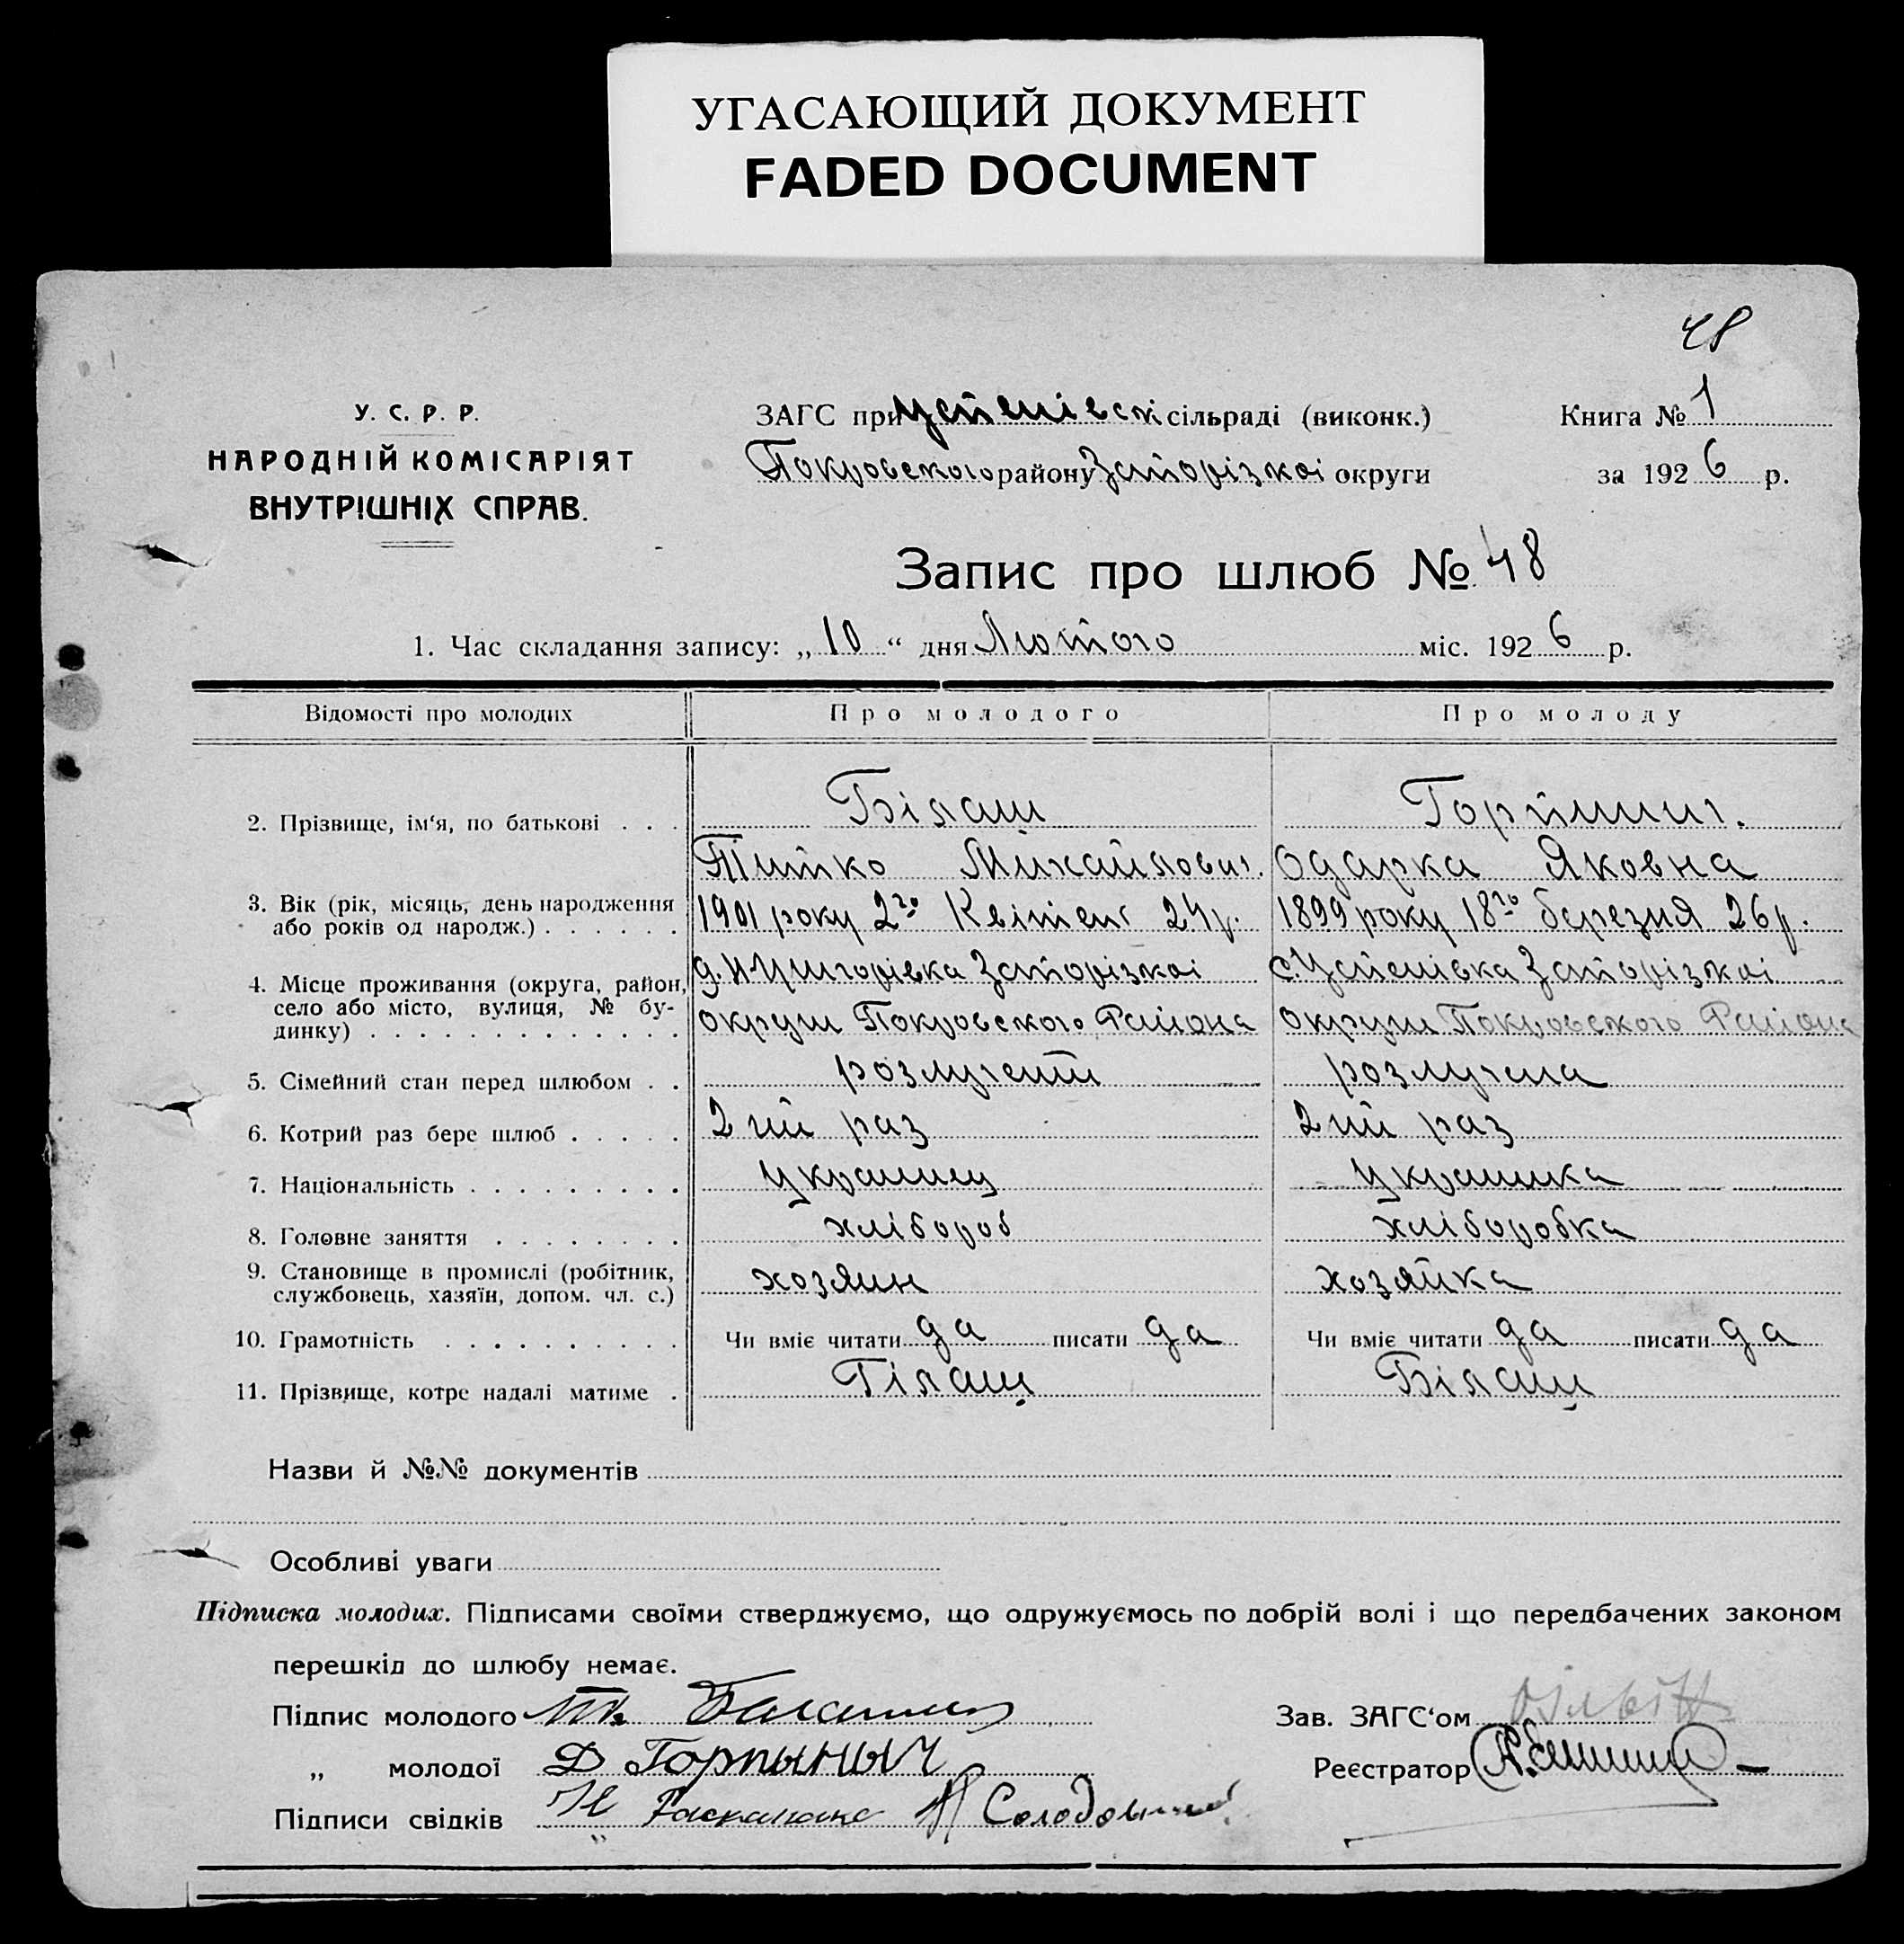 УГАСАЮЩИЙ ДОКУМЕНТ
FADED DOCUMENT
48
У. С. Р. Р.
НАРОДНІЙ КОМІСАРІЯТ
ВНУТРІШНІХ СПРАВ.
ЗАГС при Успенівскі сільраді (виконк.)
Покровського району Запорізкоі округи
Книга № 1
за 1926 р.
Запис про шлюб № 48
1. Час складання запису: „10“ дня Лютого міс. 1926 р.
Відомості про молодих
Про молодого
Про молоду
2. Прізвище, ім‘я, по батькові . . .
Білаш
Тітко Михайлович.
Горпинич.
Одарка Яковна
3. Вік (рік, місяць, день народження
або років од народж.) . . . . . .
1901 року 2го Квітень 24 р.
1899 року 18го березня 26 р.
4. Місце проживання (округа, район,
село або місто, вулиця, № бу-
динку) . . . . . . . . . . . . .
Запорізкоі
округи Покровского Района
с. Успенівка Запорізкоі
округи Покровского Района
5. Сімейний стан перед шлюбом . .
розлучений
розлучена
6. Котрий раз бере шлюб . . . . .
2 ий раз
2 ий раз
7. Національність . . . . . . . . .
українец
українка
8. Головне заняття . . . . . . . .
хлібороб
хліборобка
9. Становище в промислі (робітник,
службовець, хазяїн, допом. чл. с.)
хозяин
хозяйка
10. Грамотність . . . . . . . . . .
Чи вміє читати да писати да
Чи вміє читати да писати да
11. Прізвище, котре надалі матиме .
Білаш
Білаш
Назви й №№ документів
Особливі уваги
Підписка молодих. Підписами своїми стверджуємо, що одружуємось по добрій волі і що передбачених законом
перешкід до шлюбу немає.
Підпис молодого
„ молодої Д Горпыныч
Підписи свідків
Зав. ЗАГС‘ом
Реєстратор